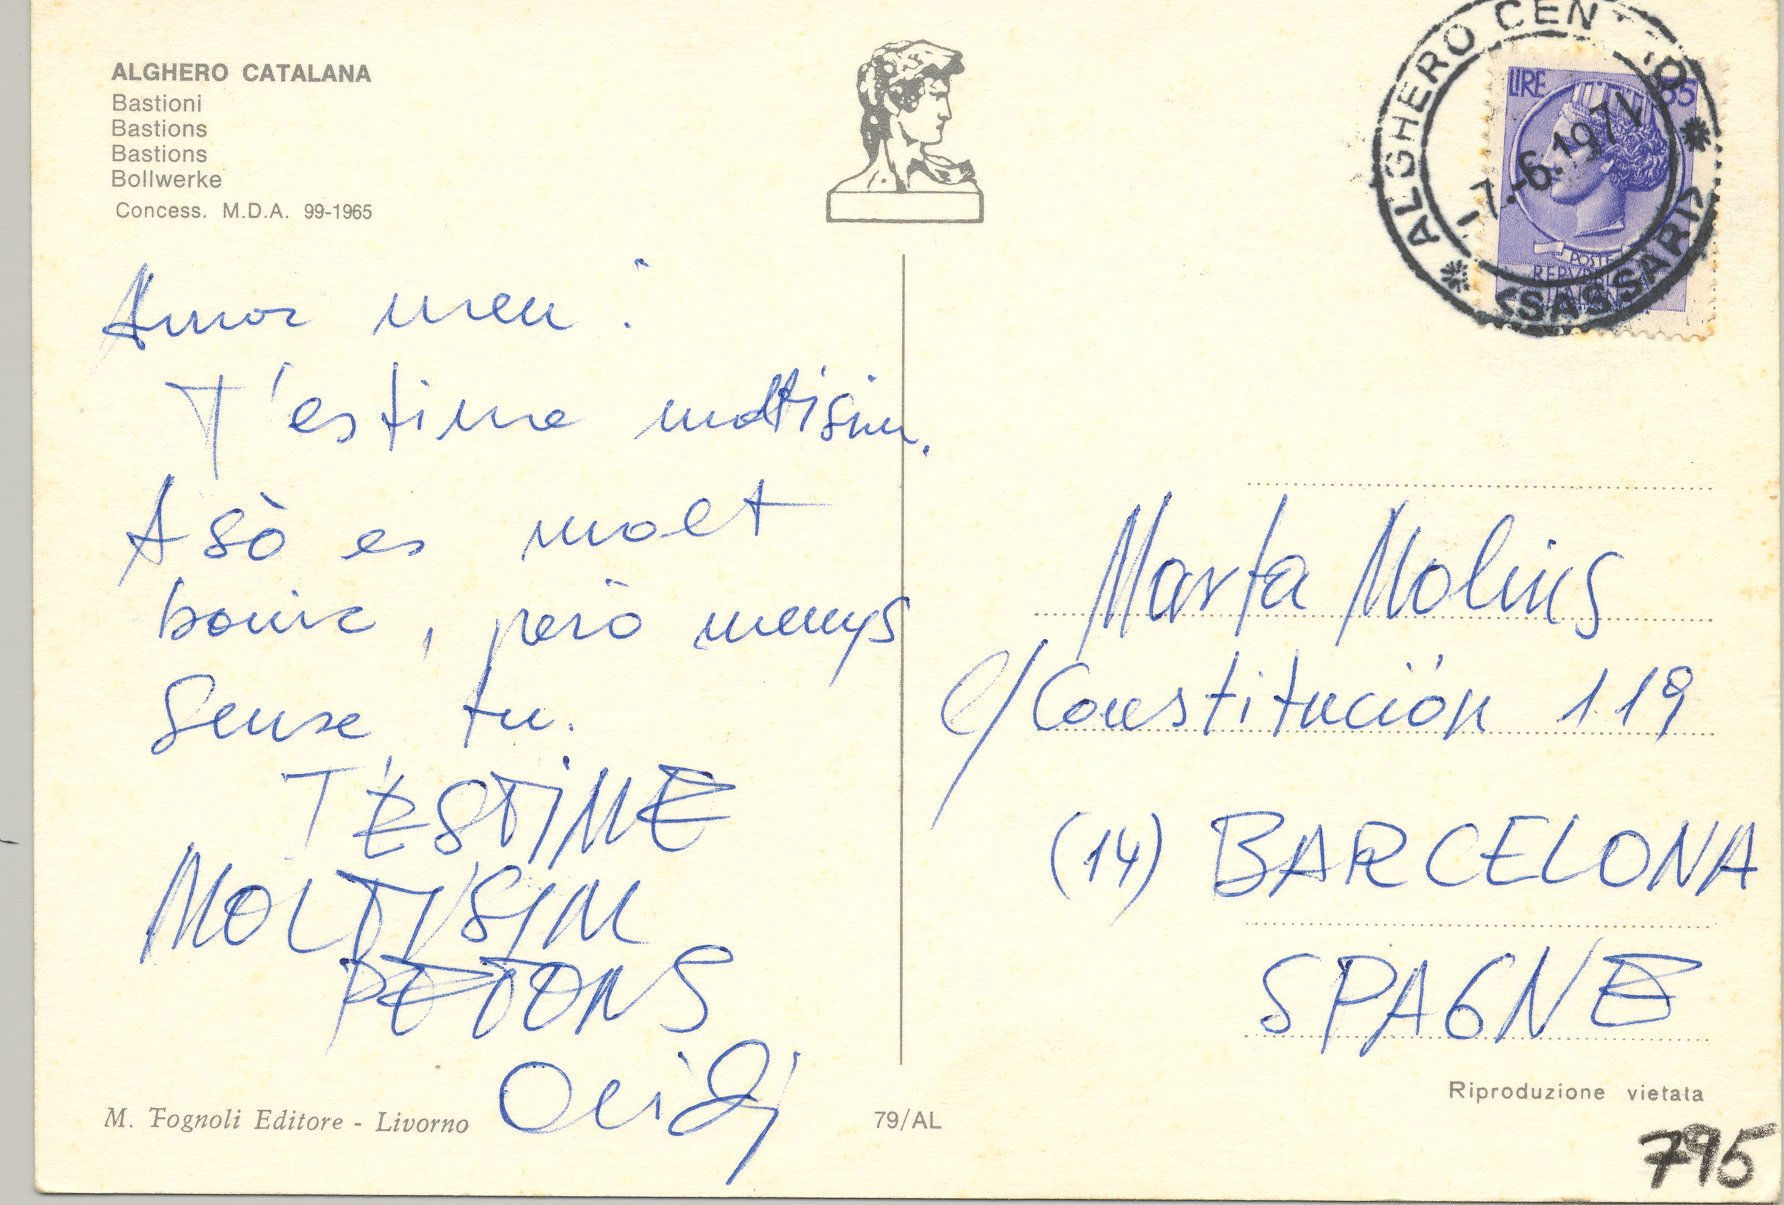 ALGHERO CATALANA
Bastioni
Bastions
Bastions
Bollwerke
Concess. M.D.A. 99-1965
ALGHERO CENTRO
(SASSARI)
-7.-6.1971
LIRE 55
POSTE
Amor meu:
T'estime moltisim.
Asò es molt
bonic, però menys
sense tu.
T'ESTIME
MOLTISIM
PETONS
Marta Molins
c/ Constitución 119
(14) BARCELONA
SPAGNE
Riproduzione vietata
M. Fognoli Editore - Livorno
79/AL
795